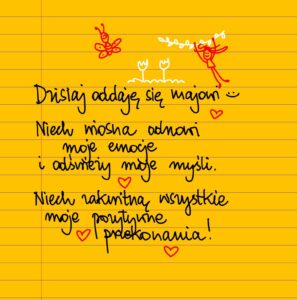 Dzisiaj oddaję się majowi
Niech wiosna odnowi
moje emocje
i odświeży moje myśli.
Niech zakwitną wszystkie
moje pozytywne
przekonania!